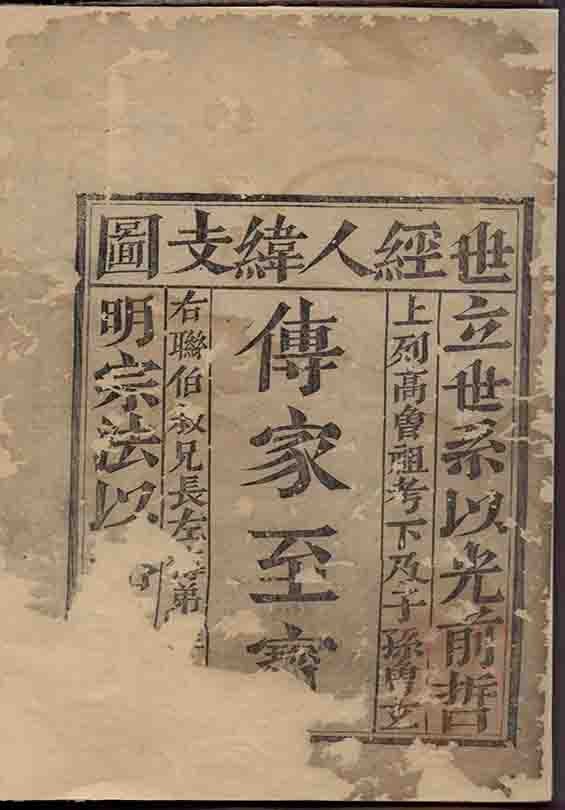 世經人緯支圖
立世系以光前哲
上列高曾祖考下及子孫曾玄
傳家至寶
右聯伯叔兄長左弟
明宗法以